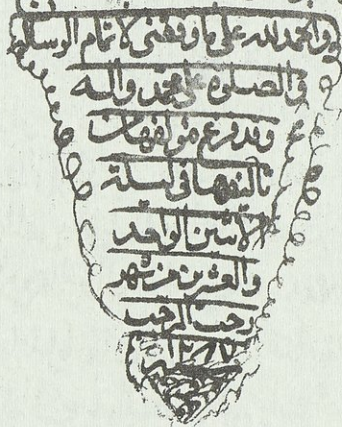 والحمد لله على ما وفقنى لاتمام الرسالة
والصلوة على محمد واله
وقد فرغ مؤلفها من
تاليفها فى ليلة
الاثنين الواحد
والعشرين من شهر
رجب المرجب